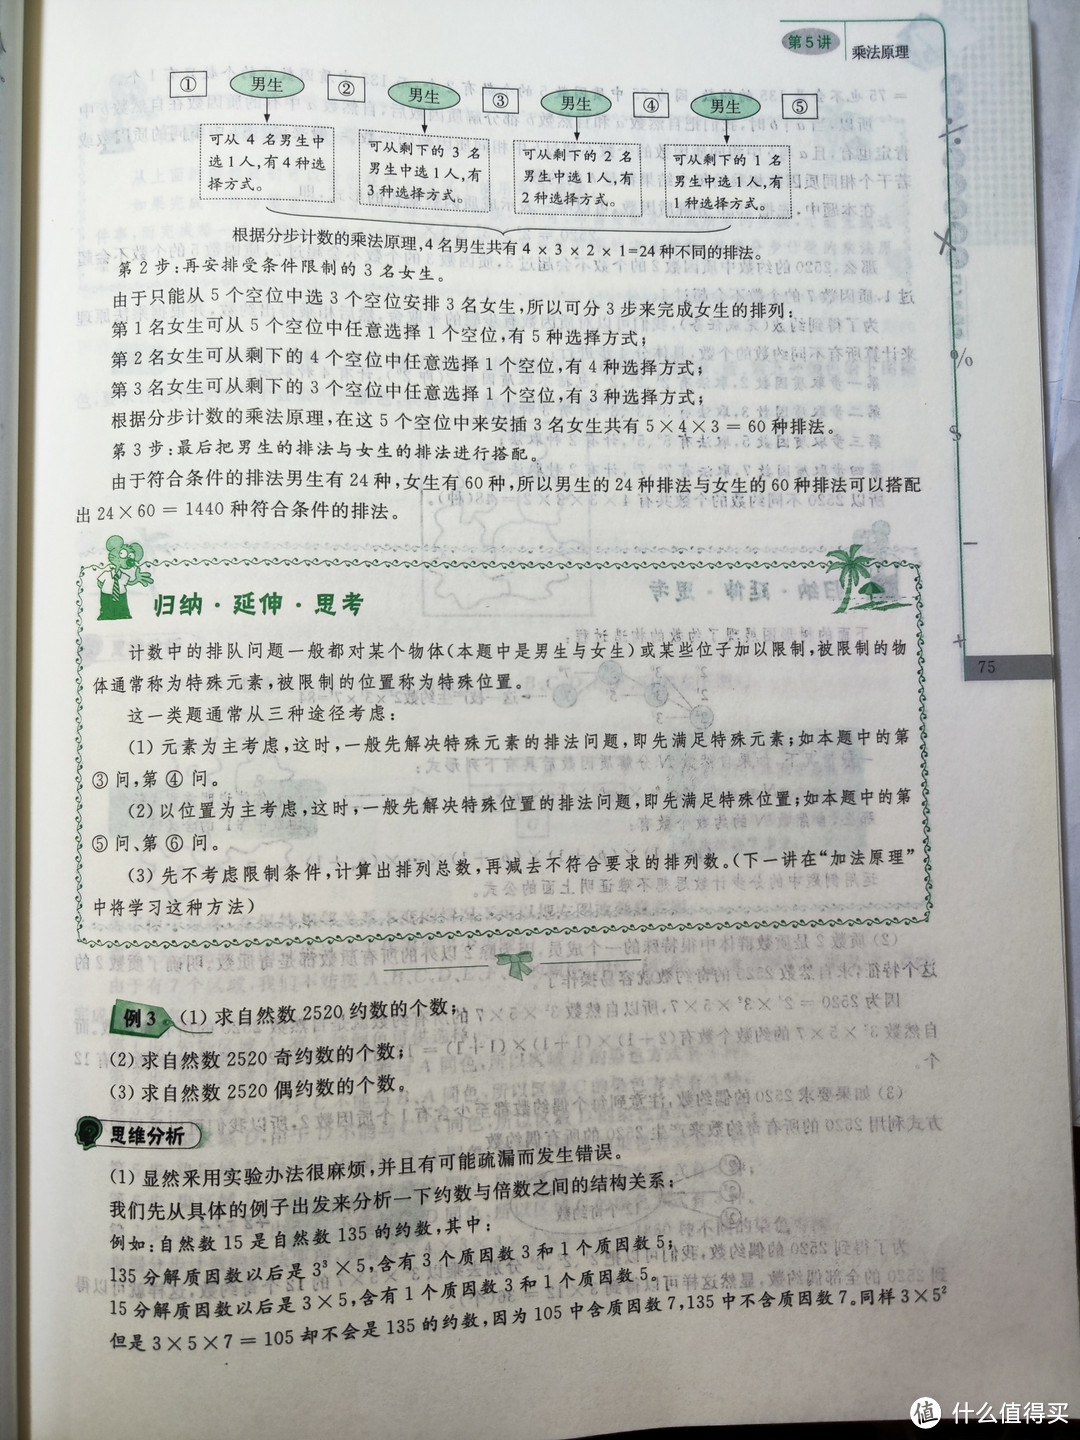 第5讲 乘法原理
① 男生 ② 男生 ③ 男生 ④ 男生 ⑤
可从 4 名男生中
选1人,有4种选
择方式。
可从剩下的 3 名
男生中选1人,有
3种选择方式。
可从剩下的 2 名
男生中选1人,有
2种选择方式。
可从剩下的 1 名
男生中选1人,有
1种选择方式。
根据分步计数的乘法原理,4名男生共有 4×3×2×1=24种不同的排法。
第2步:再安排受条件限制的3名女生。
由于只能从5个空位中选3个空位安排3名女生,所以可分3步来完成女生的排列:
第1名女生可从5个空位中任意选择1个空位,有5种选择方式;
第2名女生可从剩下的4个空位中任意选择1个空位,有4种选择方式;
第3名女生可从剩下的3个空位中任意选择1个空位,有3种选择方式;
根据分步计数的乘法原理,在这5个空位中来安插3名女生共有5×4×3=60种排法。
第3步:最后把男生的排法与女生的排法进行搭配。
由于符合条件的排法男生有24种,女生有60种,所以男生的24种排法与女生的60种排法可以搭配
出24×60=1440种符合条件的排法。
归纳·延伸·思考
计数中的排队问题一般都对某个物体(本题中是男生与女生)或某些位子加以限制,被限制的物
体通常称为特殊元素,被限制的位置称为特殊位置。
这一类题通常从三种途径考虑:
(1) 元素为主考虑,这时,一般先解决特殊元素的排法问题,即先满足特殊元素;如本题中的第
③ 问,第 ④ 问。
(2) 以位置为主考虑,这时,一般先解决特殊位置的排法问题,即先满足特殊位置;如本题中的第
⑤ 问、第 ⑥ 问。
(3) 先不考虑限制条件,计算出排列总数,再减去不符合要求的排列数。(下一讲在“加法原理”
中将学习这种方法)
75
例3 (1) 求自然数2520约数的个数;
(2) 求自然数2520奇约数的个数;
(3) 求自然数2520偶约数的个数。
思维分析
(1) 显然采用实验办法很麻烦,并且有可能疏漏而发生错误。
我们先从具体的例子出发来分析一下约数与倍数之间的结构关系;
例如:自然数15是自然数135的约数,其中:
135分解质因数以后是3³×5,含有3个质因数3和1个质因数5;
15分解质因数以后是3×5,含有1个质因数3和1个质因数5。
但是3×5×7=105却不会是135的约数,因为105中含质因数7,135中不含质因数7。同样3×5²
值 什么值得买